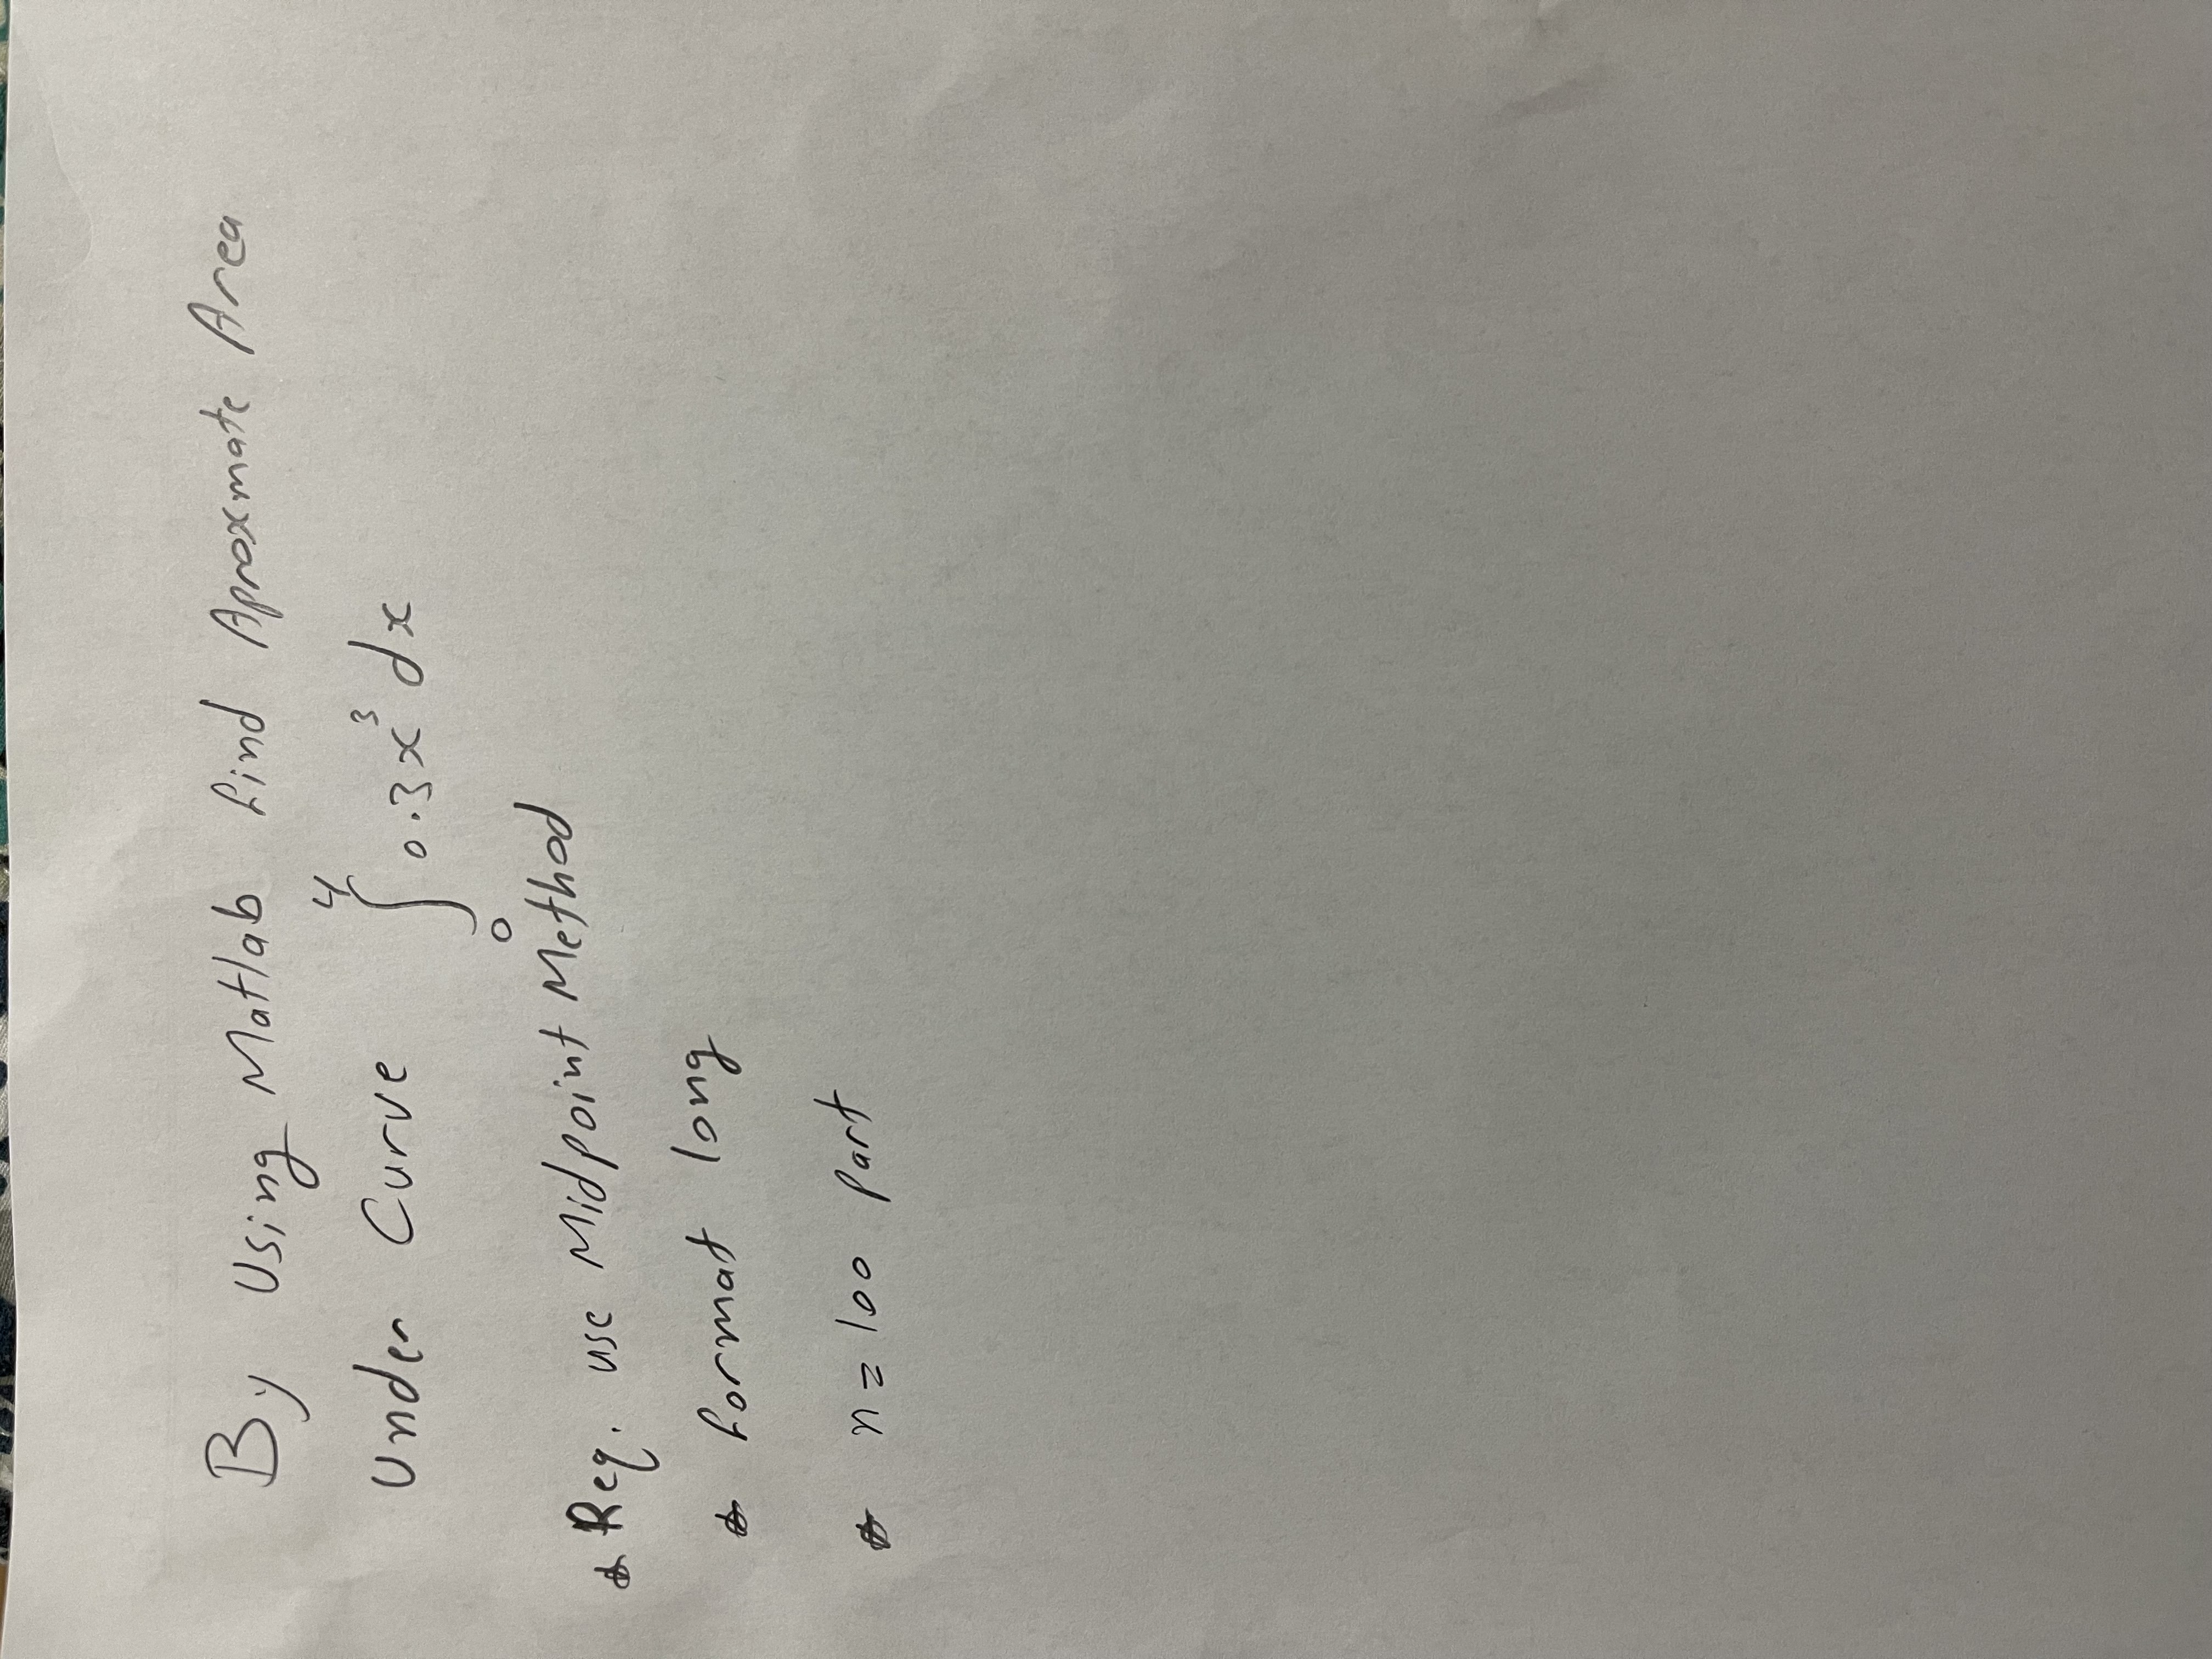 By Using Matlab find Aproxmate Area
Under Curve ∫₀⁴ 0.3x³ dx
* Req. use Midpoint Method
* format long
* n = 100 part